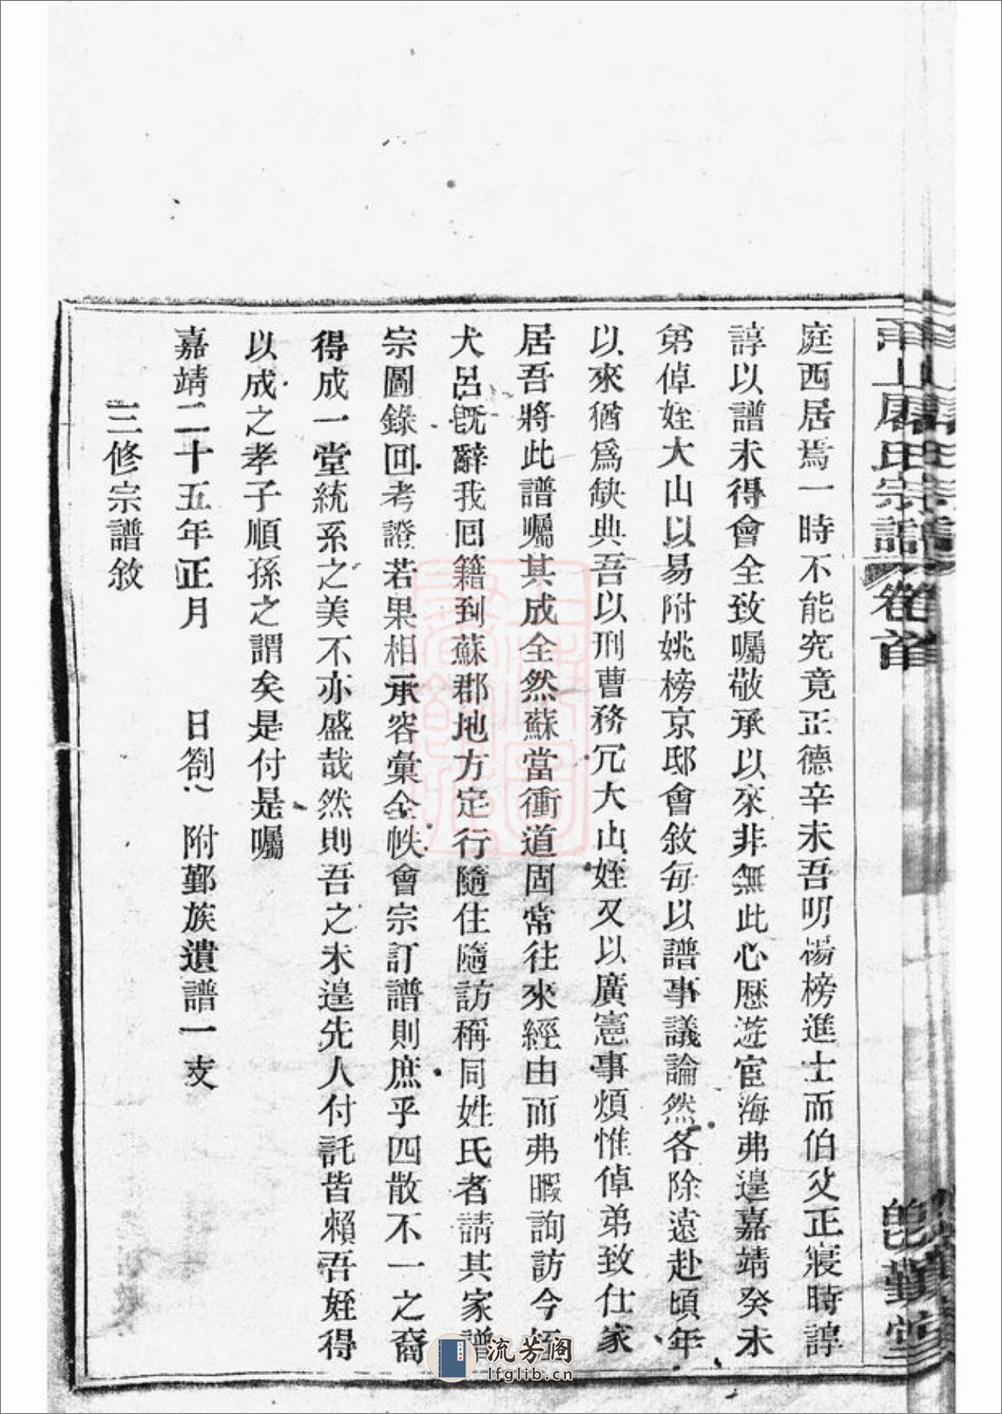 甬上屠氏宗譜 卷首
庭西居焉一時不能究竟正德辛未吾叨楊榜進士而伯父正寢時諄
諄以譜未得會全致囑敬承以來非無此心歷遊宦海弗遑嘉靖癸未
弟倬姪大山以易附姚榜京邸會敘每以譜事議論然各除遠赴頃年
以來猶為缺典吾以刑曹務冗大山姪又以廣憲事煩惟倬弟致仕家
居吾將此譜囑其成全然蘇當衝道固常往來經由而弗暇詢訪今姪
大呂既辭我回籍到蘇郡地方定行隨住隨訪稱同姓氏者請其家譜
宗圖錄回考證若果相承容彙全帙會宗訂譜則庶乎四散不一之裔
得成一堂統系之美不亦盛哉然則吾之未遑先人付託皆賴吾姪得
以成之孝子順孫之謂矣是付是囑
嘉靖二十五年正月 日劄 附鄞族遺譜一支
三修宗譜敘
勤堂
流芳阁
lfglib.cn